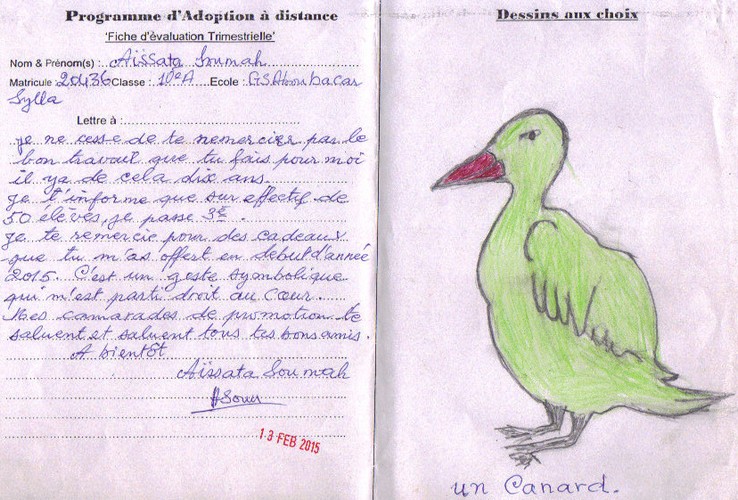 Programme d'Adoption à distance
'Fiche d'évaluation Trimestrielle'
Nom & Prénom(s) : Aïssata Soumah
Matricule : 20436 Classe : 10e A Ecole : GSAboubacar
Sylla
Lettre à :
je ne cesse de te remercier pas le
bon travail que tu fais pour moi
il ya de cela dix ans.
Je t'informe que sur effectif de
50 élèves, je passe 3e.
Je te remercie pour des cadeaux
que tu m'as offert en debut d'année
2015. C'est un geste symbolique
qui m'est parti droit au cœur.
Mes camarades de promotion te
saluent et saluent tous tes bons amis.
A bientôt
Aïssata Soumah
13 FEB 2015
Dessins aux choix
un Canard.